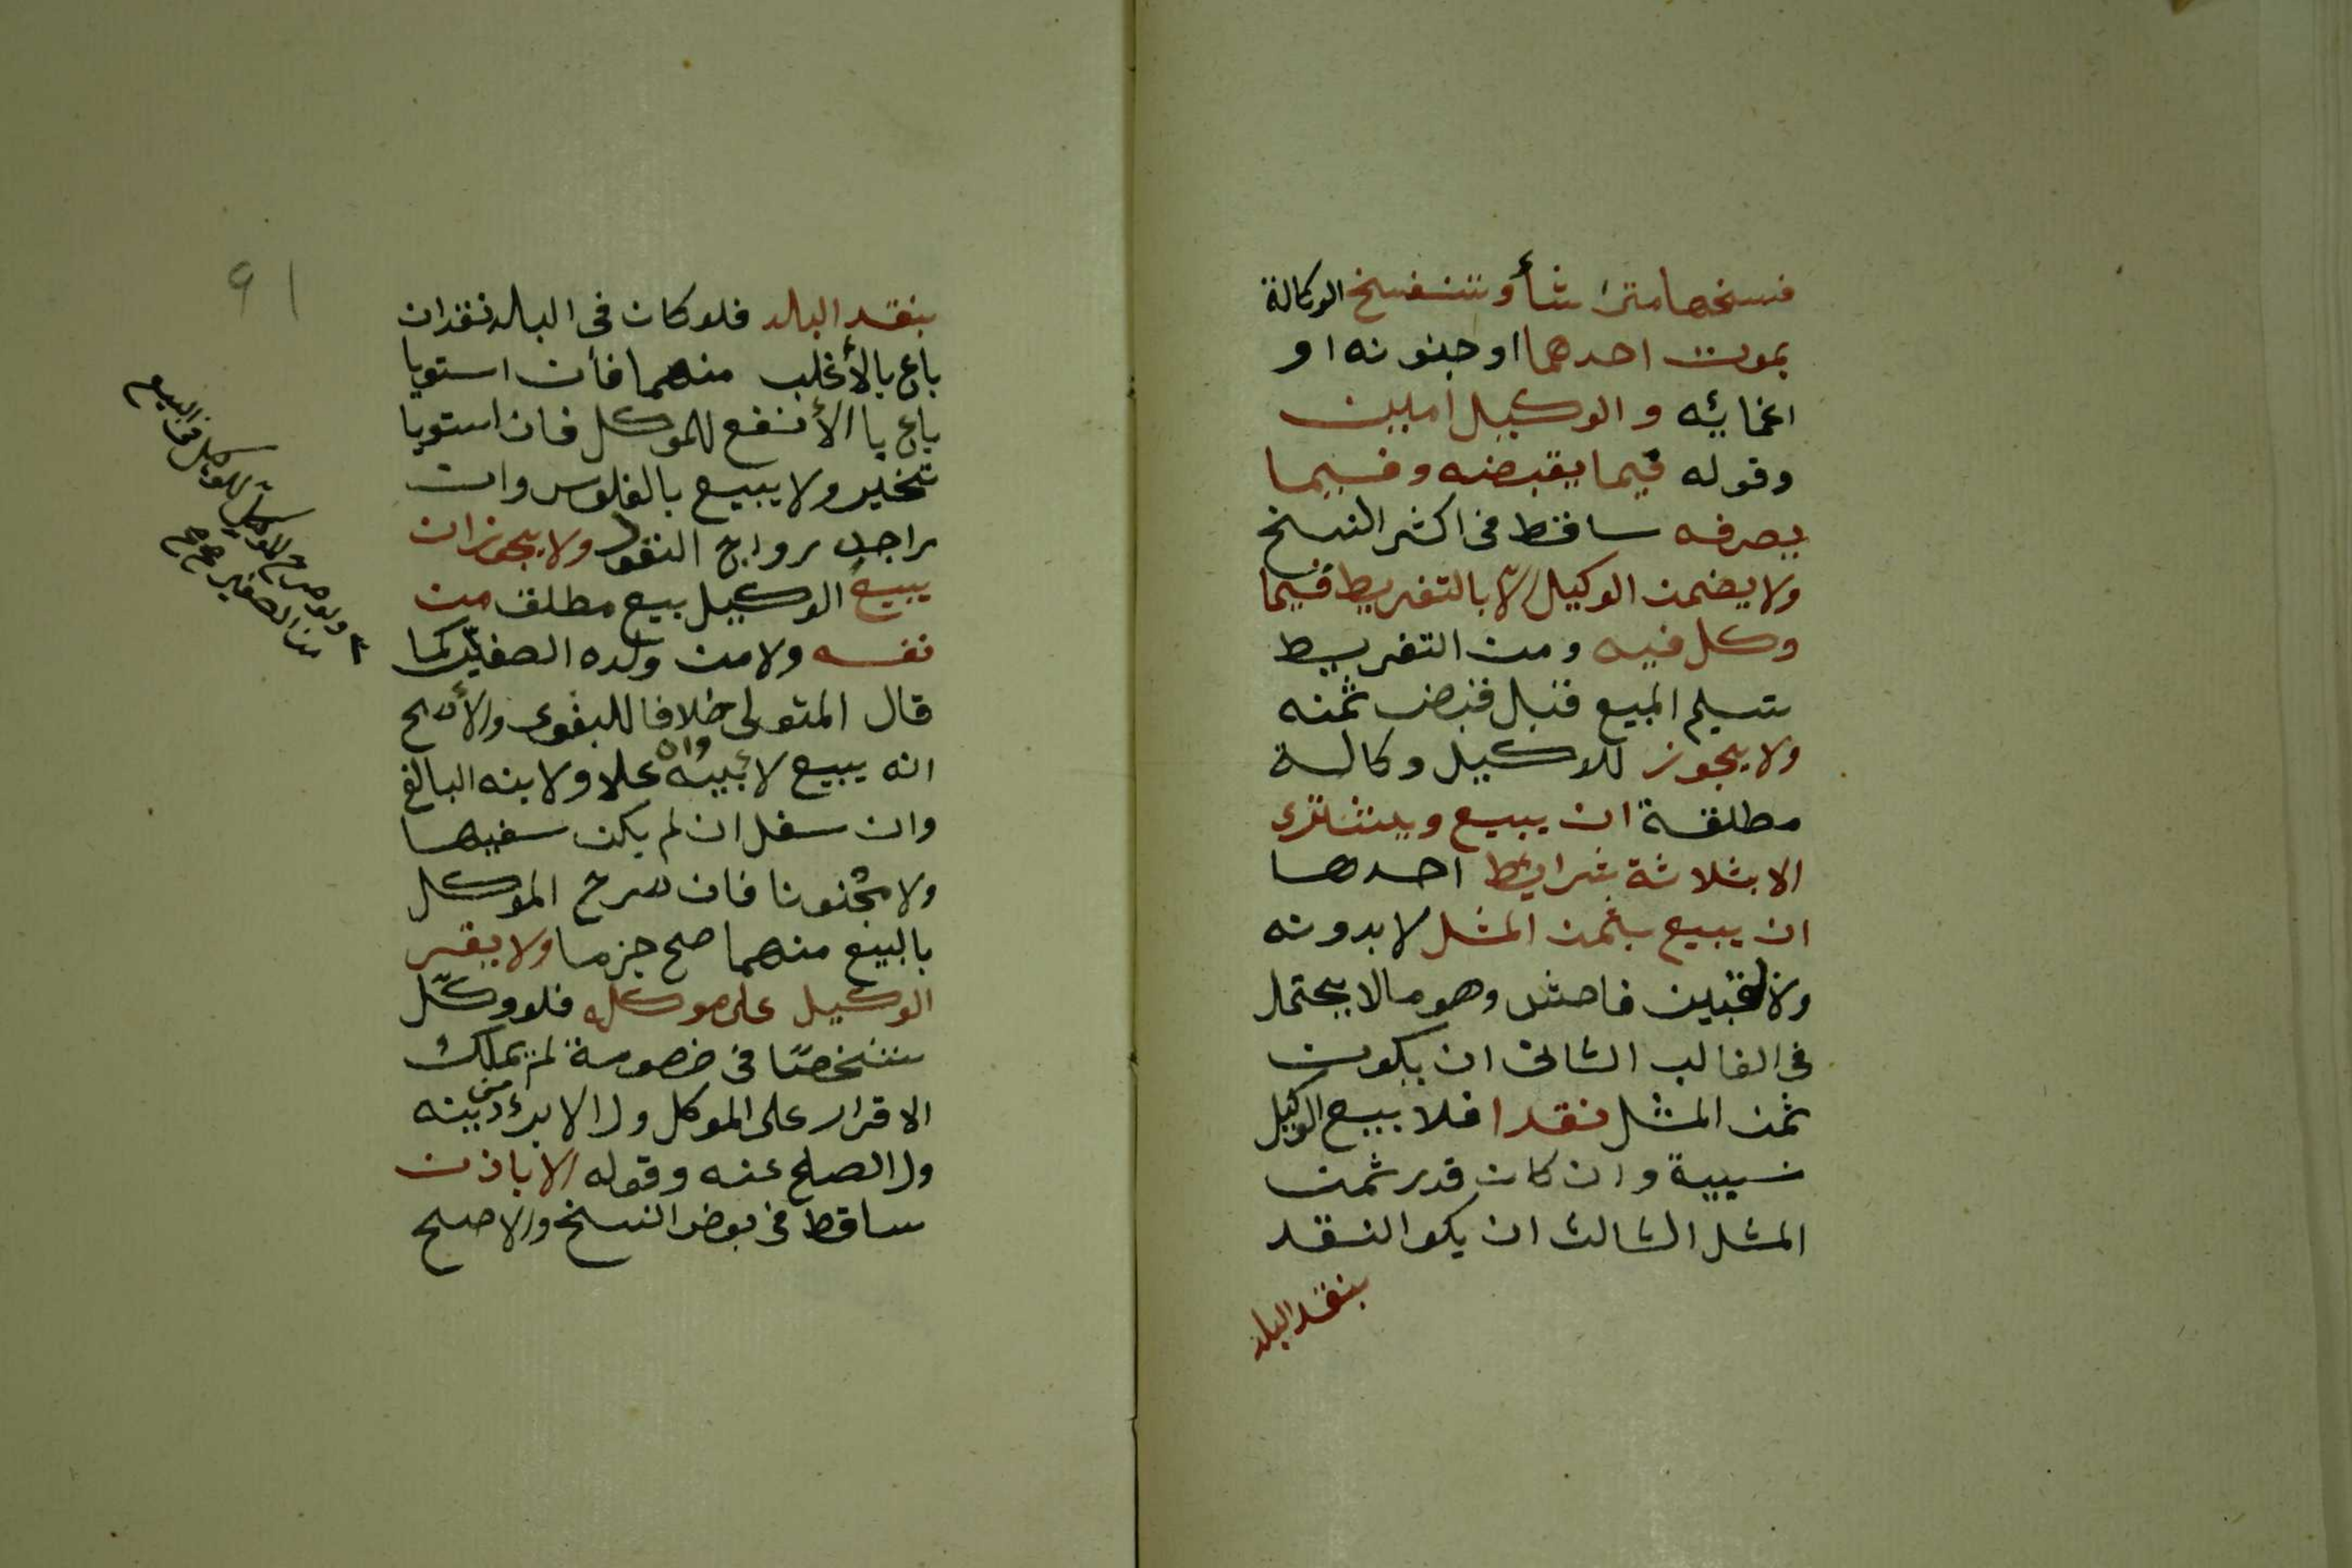 فسخها متى شأ وتنفسخ الوكالة
بموت احدهما او جنونه او
اغمائه والوكيل امين
وقوله فيما يقبضه وفيما
يصرفه ساقط في اكثر النسخ
ولا يضمن الوكيل الا بالتفريط فيما
وكل فيه ومن التفريط
تسليم المبيع قبل قبض ثمنه
ولا يجوز للوكيل وكالة
مطلقة ان يبيع ويشترى
الا بثلاثة شرايط احدها
ان يبيع بثمن المثل لا بدونه
ولا بغبين فاحش وهو مالا يحتمل
في الغالب الثانى ان يكون
ثمن المثل نقدا فلا يبيع الوكيل
نسيية وان كان قدر ثمن
المثل الثالث ان يكو النقد
بنقد البلد
91
بنقد البلد فلو كان في البلد نقدان
باع بالأغلب منهما فأن استويا
باع با الأنفع للموكل فان استويا
تخير ولا يبيع بالفلوس وان
راجت رواج النقود ولا يجوز ان
يبيع الوكيل بيع مطلق من
نفسه ولا من ولده الصغير كما
قال المتولى خلافا للبغوى والأصح
انه يبيع لأبيه وان علا ولابنه البالغ
وان سفل ان لم يكن سفيها
ولا مجنونا فان صرح الموكل
بالبيع منهما صح جزما ولا يقر
الوكيل على موكله فلو وكل
شخصا في خصومة لم يملك
الاقرار على الموكل ولا الابرء من دينه
ولا الصلح عنه وقوله الا باذن
ساقط في بعض النسخ والاصح
ولو صرح الموكل للوكيل في البيع
من الصغير صح صح